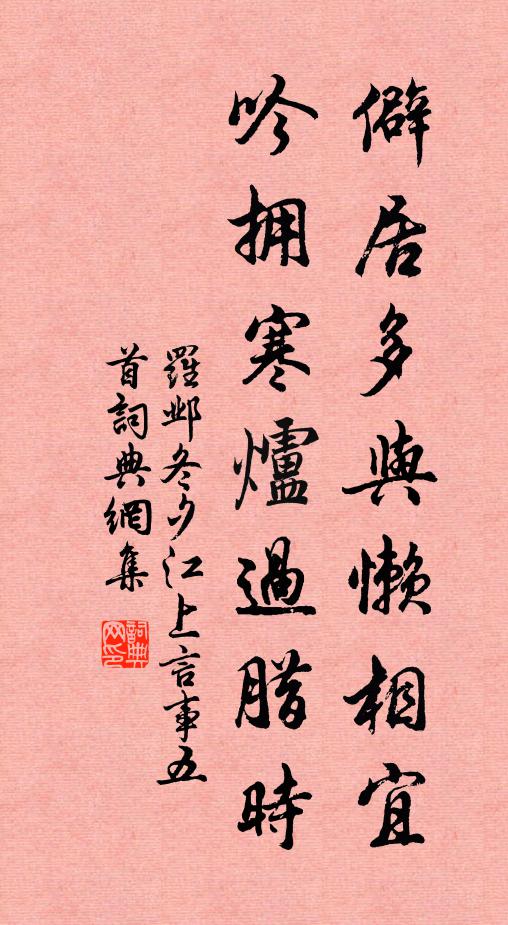 僻居多與懶相宜
吟拥寒爐過腊時
羅邺冬夕江上言事五
首詞典網集
詞典网印